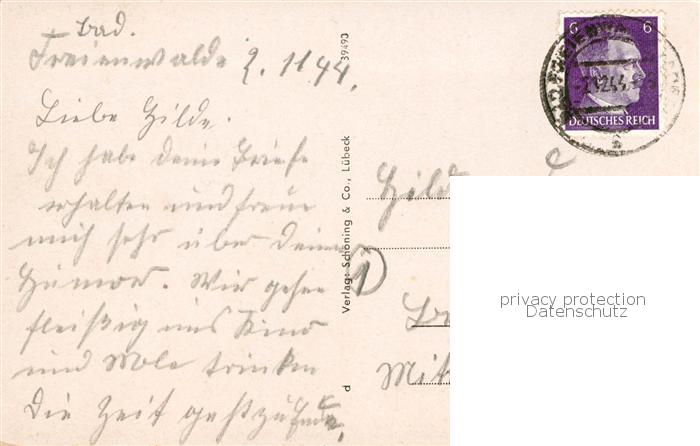 Bad.
Freienwalde 2. 11 44.
Liebe Hilde.
Ich habe deine Briefe
erhalten und freue
mich sehr über deinen
Humor. Wir gehen
fleißig ins Kino
und Mole trinken
die Zeit geht zu Ende.
39493
Verlag: Schöning & Co., Lübeck
d
6 6
DEUTSCHES REICH
Hild
Mit
privacy protection
Datenschutz